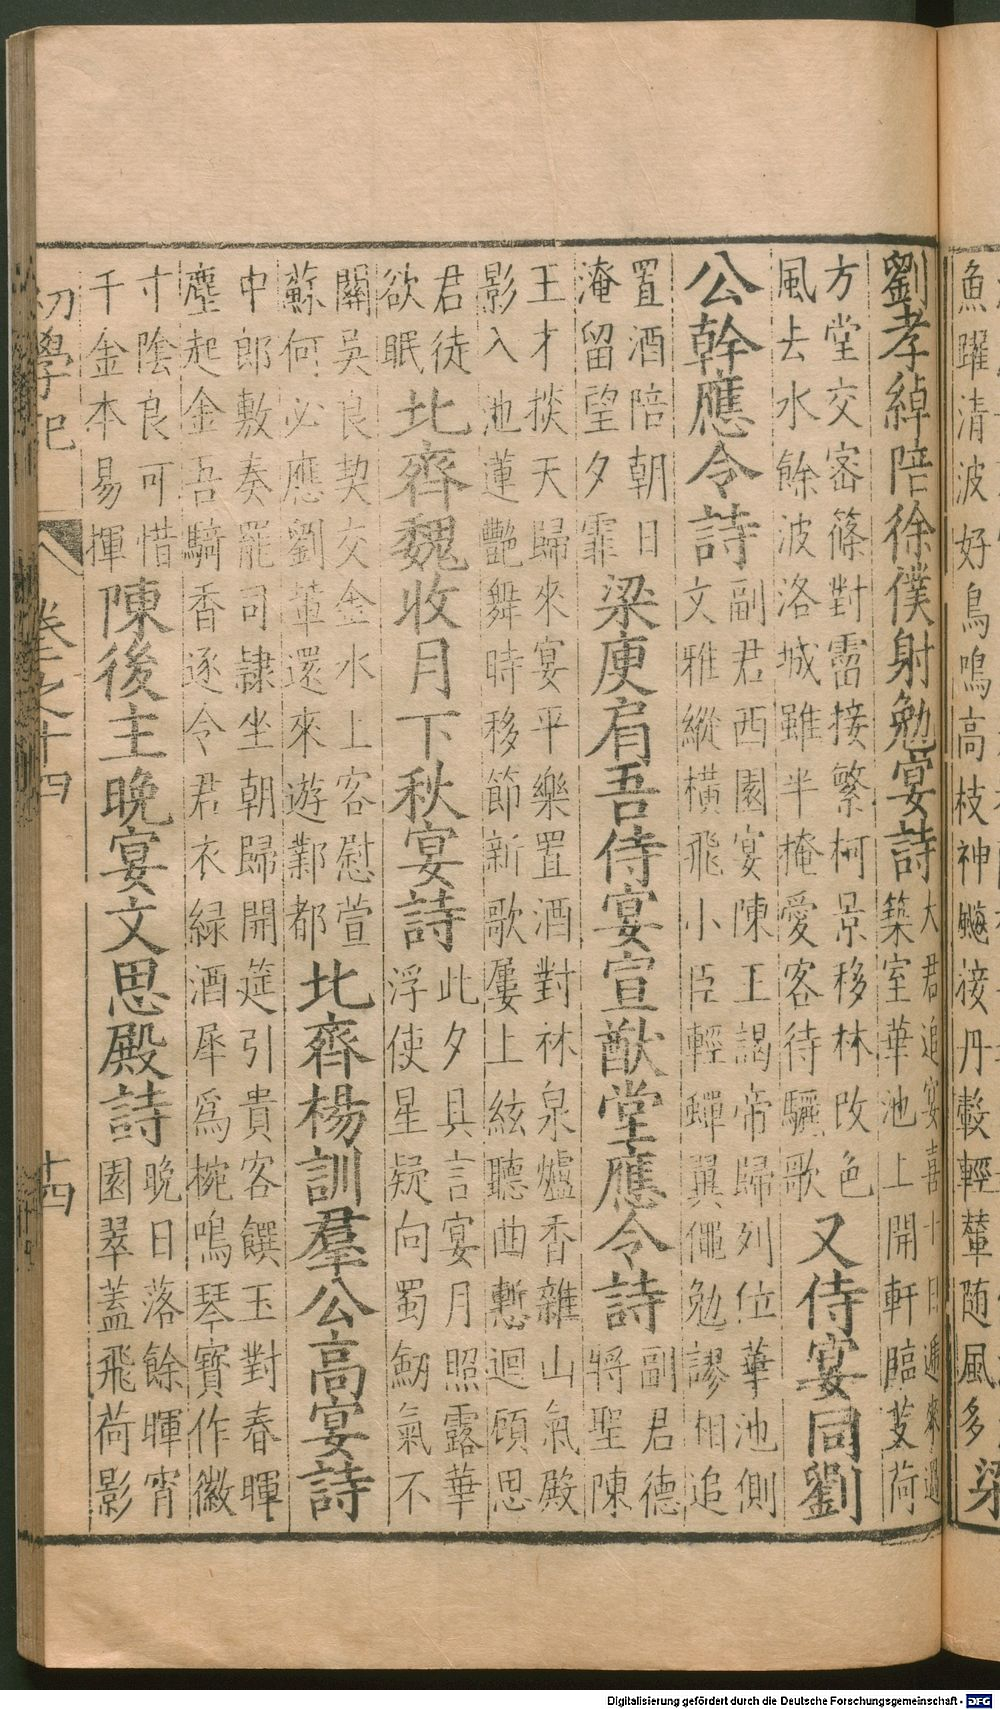 魚躍清波好鳥鳴高枝神飈接丹轂輕輦随風多
梁
劉孝綽陪徐僕射勉宴詩
夫君追宴喜十日遞來過
築室華池上開軒臨芰荷
方堂交密篠對霤接繁柯景移林改色
風去水餘波洛城雖半掩愛客待驪歌
又侍宴同劉
公幹應令詩
副君西園宴陳王謁帝歸列位華池側
文雅縱橫飛小臣輕蟬翼僶勉謬相追
置酒陪朝日
淹留望夕霏
梁庾肩吾侍宴宣猷堂應令詩
副君德
將聖陳
王才掞天歸來宴平樂置酒對林泉爐香雜山氣殿
影入池蓮艷舞時移節新歌屢上絃聽曲慙迴顧思
君徒
欲眠
北齊魏收月下秋宴詩
此夕具言宴月照露華
浮使星疑向蜀劒氣不
關吳良契交金水上客慰萱
蘇何必應劉輩還來遊鄴都
北齊楊訓羣公高宴詩
中郎敷奏罷司隸坐朝歸開筵引貴客饌玉對春暉
塵起金吾騎香逐令君衣緑酒犀爲椀鳴琴寶作徽
寸陰良可惜
千金本易揮
陳後主晚宴文思殿詩
晚日落餘暉宵
園翠蓋飛荷影
初學記
卷之十四
十四
Digitalisierung gefördert durch die Deutsche Forschungsgemeinschaft - DFG